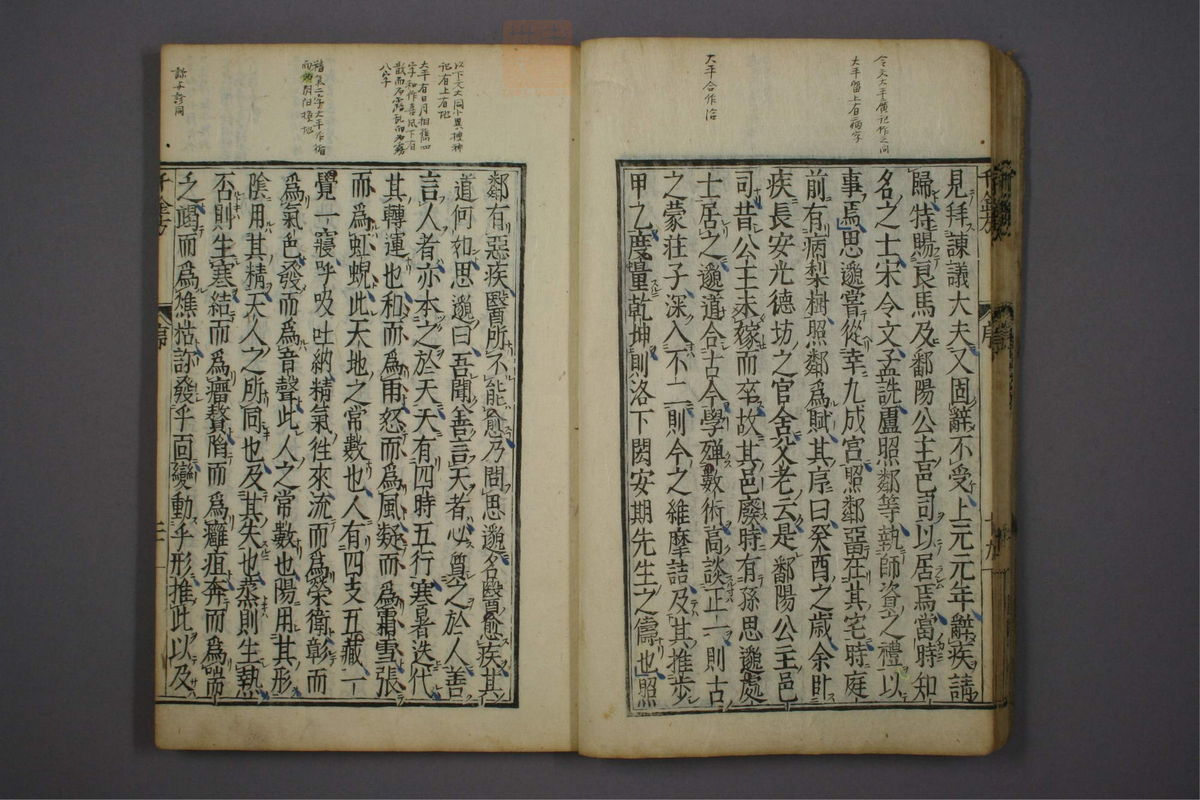 今文大平廣記作之同
大平留上有二病字
大平合作洽
見拜諫議大夫又固辭不受上元元年辭疾請
歸特賜良馬及鄱陽公主邑司以居焉當時知
名之士宋令文孟詵盧照鄰等執師資之禮以
事焉思邈嘗從幸九成宮照鄰留在其宅時庭
前有病梨樹照鄰爲賦其序曰癸酉之歳余臥
疾長安光德坊之官舍父老云是鄱陽公主邑
司昔公主未嫁而卒故其邑廢時有孫思邈處
士居之邈道合古今學殫數術高談正一則古
之蒙莊子深入不二則今之維摩詰及其推步
甲乙度量乾坤則洛下閎安期先生之儔也照
以下文大同小異搜神
記有上有記
鄰有惡疾醫所不能愈乃問思邈名醫愈疾其
道何如思邈曰吾聞善言天者必質之於人善
言人者亦本之於天天有四時五行寒暑迭代
其轉運也和而爲雨怒而爲風凝而爲霜雪張
而爲虹蜺此天地之常數也人有四支五藏一
覺一寢呼吸吐納精氣徃來流而爲榮衛彰而
爲氣色發而爲音聲此人之常數也陽用其形
陰用其精天人之所同也及其失也蒸則生熱
否則生寒結而爲瘤贅陷而爲癰疽奔而爲喘
乏竭而爲焦枯診發乎面變動乎形推此以及
千金方
序
二